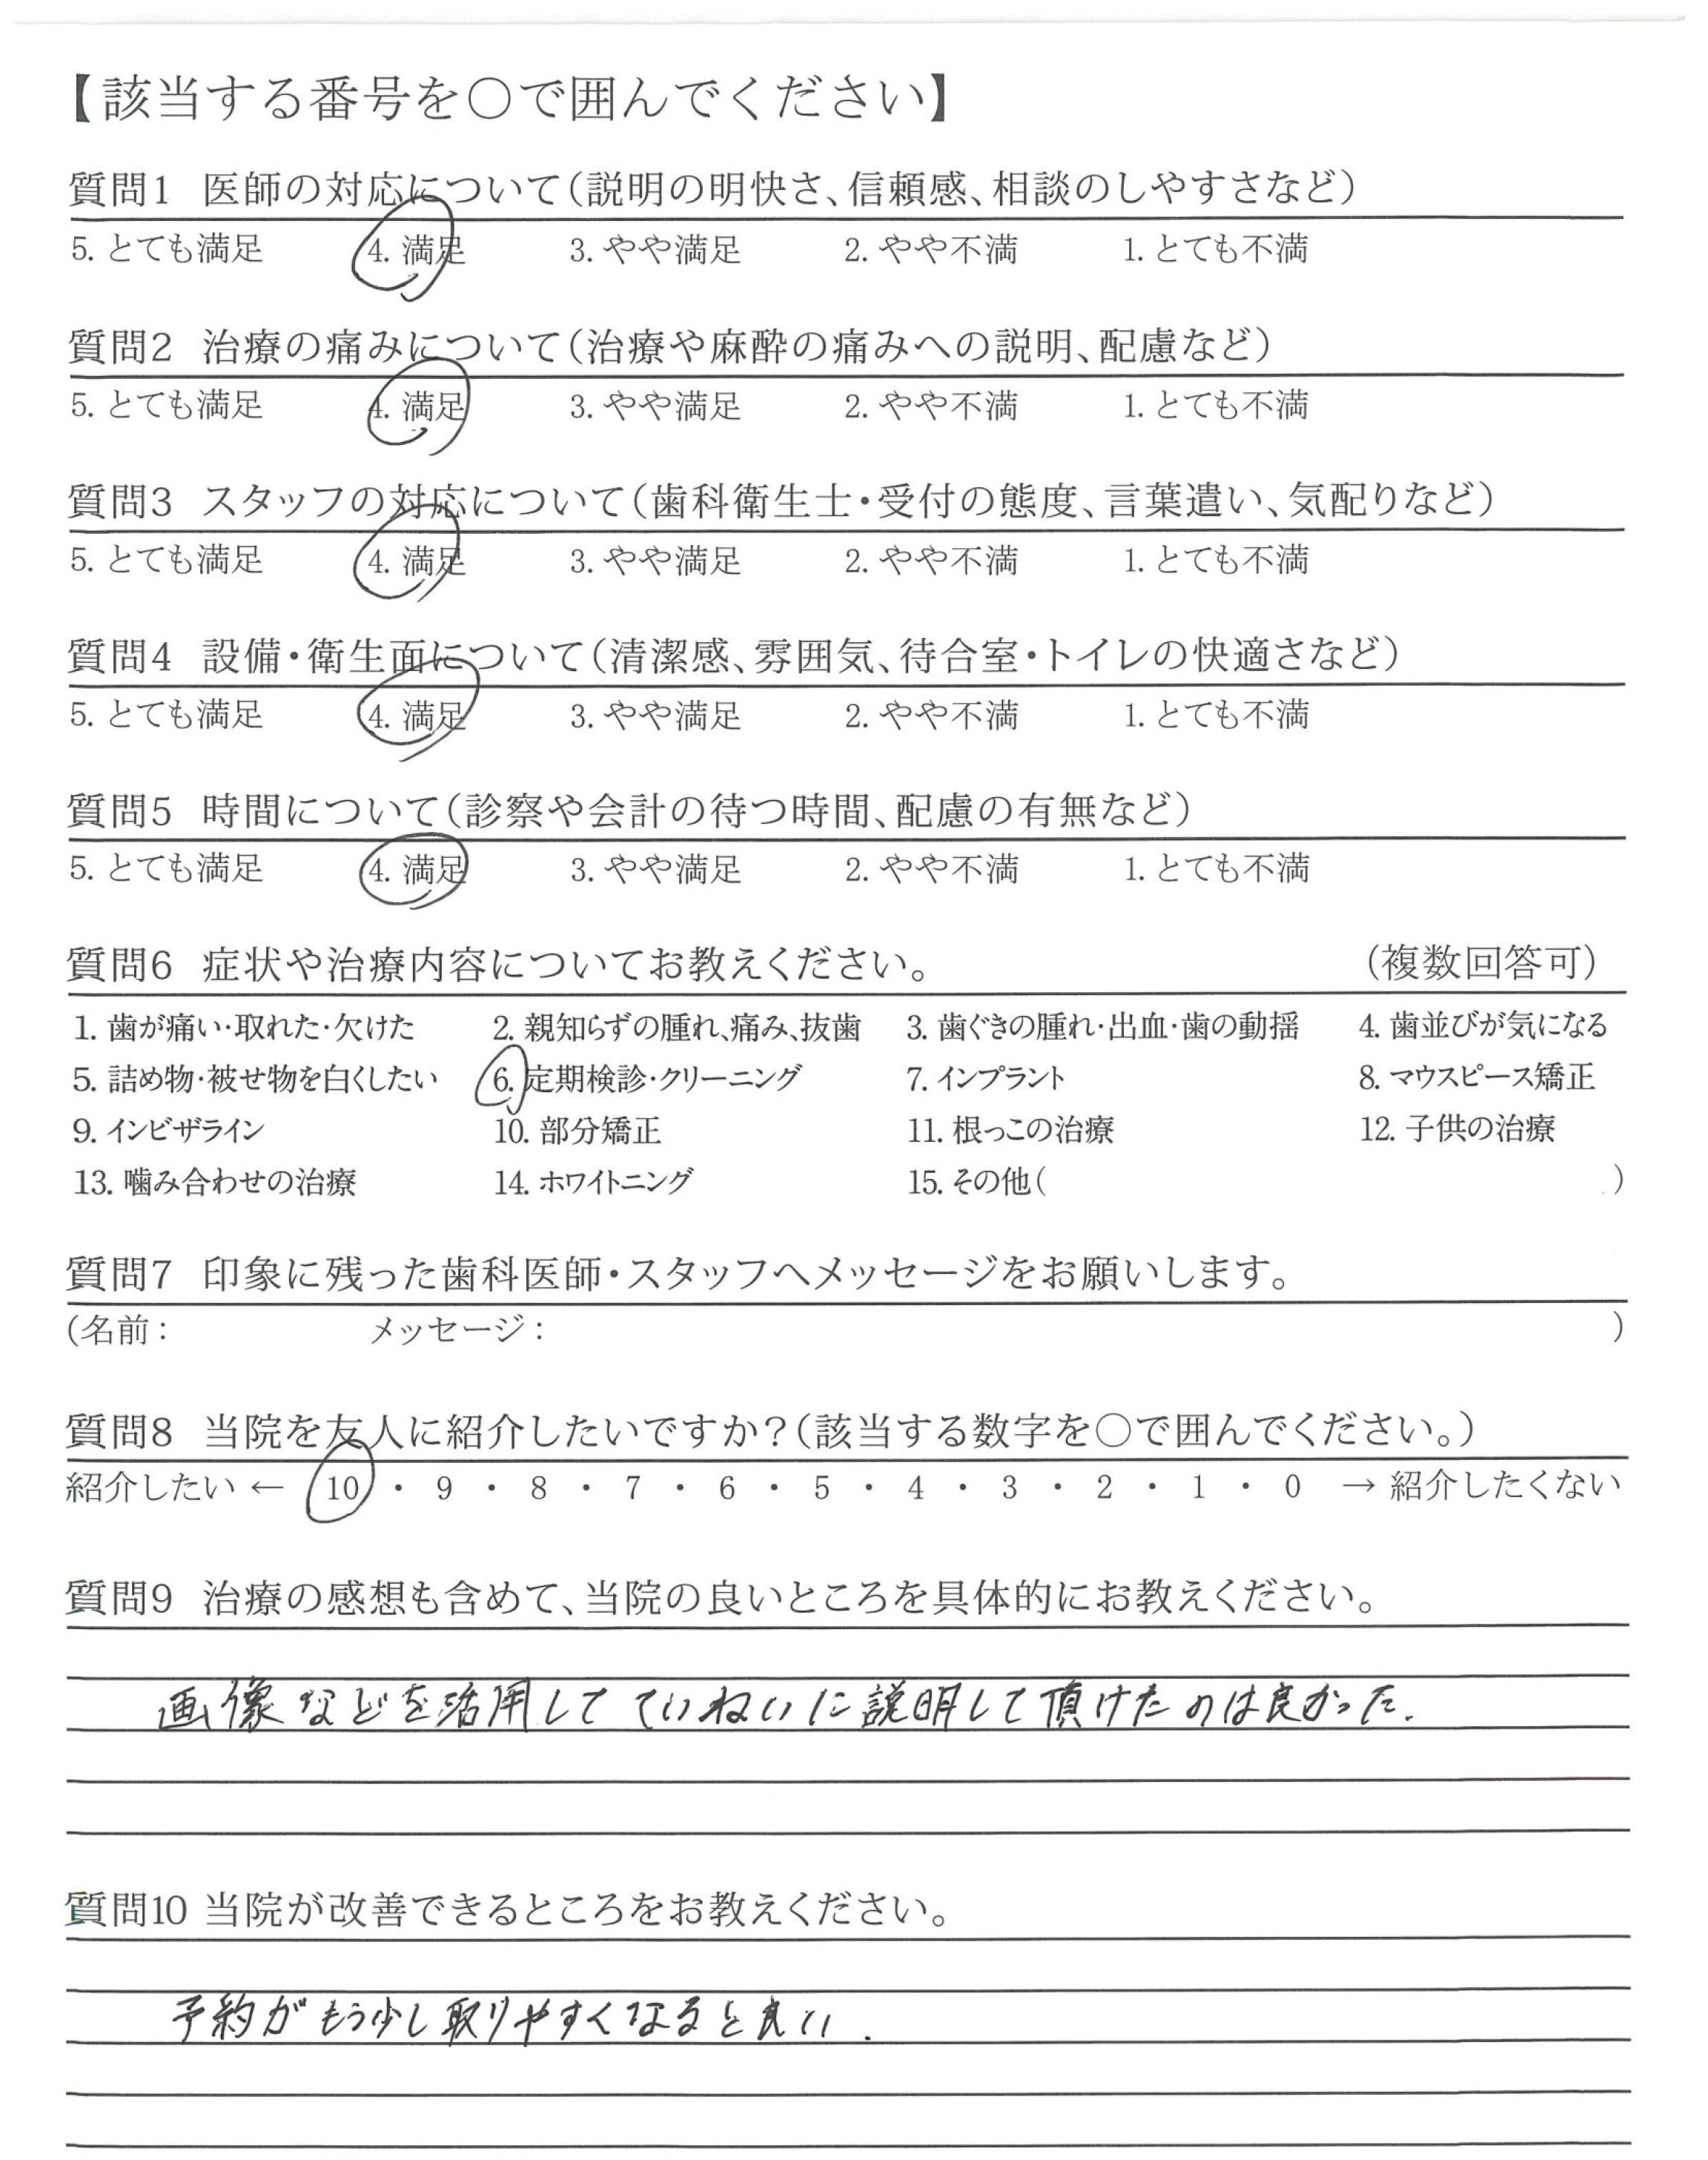 【該当する番号を○で囲んでください】
質問1 医師の対応について(説明の明快さ、信頼感、相談のしやすさなど)
5. とても満足 4. 満足 3. やや満足 2. やや不満 1. とても不満
質問2 治療の痛みについて(治療や麻酔の痛みへの説明、配慮など)
5. とても満足 4. 満足 3. やや満足 2. やや不満 1. とても不満
質問3 スタッフの対応について(歯科衛生士・受付の態度、言葉遣い、気配りなど)
5. とても満足 4. 満足 3. やや満足 2. やや不満 1. とても不満
質問4 設備・衛生面について(清潔感、雰囲気、待合室・トイレの快適さなど)
5. とても満足 4. 満足 3. やや満足 2. やや不満 1. とても不満
質問5 時間について(診察や会計の待つ時間、配慮の有無など)
5. とても満足 4. 満足 3. やや満足 2. やや不満 1. とても不満
質問6 症状や治療内容についてお教えください。 (複数回答可)
1. 歯が痛い・取れた・欠けた 2. 親知らずの腫れ、痛み、抜歯 3. 歯ぐきの腫れ・出血・歯の動揺 4. 歯並びが気になる
5. 詰め物・被せ物を白くしたい 6. 定期検診・クリーニング 7. インプラント 8. マウスピース矯正
9. インビザライン 10. 部分矯正 11. 根っこの治療 12. 子供の治療
13. 噛み合わせの治療 14. ホワイトニング 15. その他( )
質問7 印象に残った歯科医師・スタッフへメッセージをお願いします。
(名前: メッセージ: )
質問8 当院を友人に紹介したいですか?(該当する数字を○で囲んでください。)
紹介したい ← 10 ・ 9 ・ 8 ・ 7 ・ 6 ・ 5 ・ 4 ・ 3 ・ 2 ・ 1 ・ 0 → 紹介したくない
質問9 治療の感想も含めて、当院の良いところを具体的にお教えください。
画像などを活用して ていねいに説明して頂けたのは良かった.
質問10 当院が改善できるところをお教えください。
予約がもう少し取りやすくなると良い.